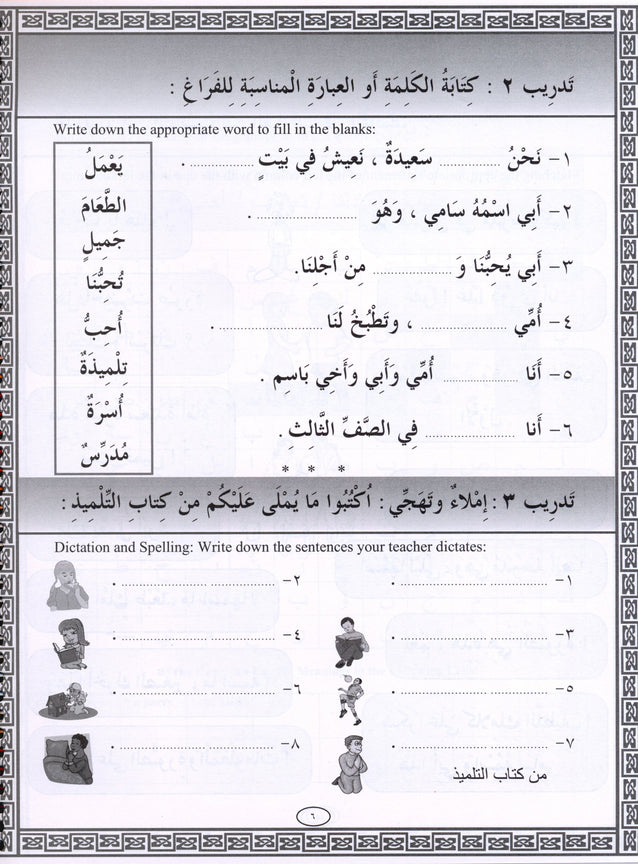 تَدرِيب ٢ : كِتَابَةُ الكَلِمَةِ أَو العِبارَةِ الْمناسِبَةِ لِلفَرَاغِ :
Write down the appropriate word to fill in the blanks:
١- نَحْنُ .................. سَعِيدَةٌ ، نَعِيشُ فِي بَيْتٍ .................. .
٢- أَبِي اسْمُهُ سَامِي ، وَهُوَ .................. .
٣- أَبِي يُحِبُّنَا وَ .................. مِنْ أَجْلِنَا.
٤- أُمِّي .................. ، وتَطْبُخُ لَنَا .................. .
٥- أَنَا .................. أُمِّي وَأَبِي وَأَخِي بَاسِم .
٦- أَنا .................. فِي الصَّفِّ الثَّالِثِ.
يَعْمَلُ
الطَّعَامَ
جَمِيلٍ
تُحبُّنَا
أُحِبُّ
تِلْمِيذَةٌ
أُسْرَةٌ
مُدَرِّسٌ
* * *
تَدرِيب ٣ : إِمْلاءٌ وتَهَجِّي : اُكْتُبُوا مَا يُمْلَى عَلَيْكُمْ مِنْ كِتابِ التِّلْمِيذِ :
Dictation and Spelling: Write down the sentences your teacher dictates:
١- .................. . ٢- .................. .
٣- .................. . ٤- .................. .
٥- .................. . ٦- .................. .
٧- .................. . ٨- .................. .
من كتاب التلميذ
٦